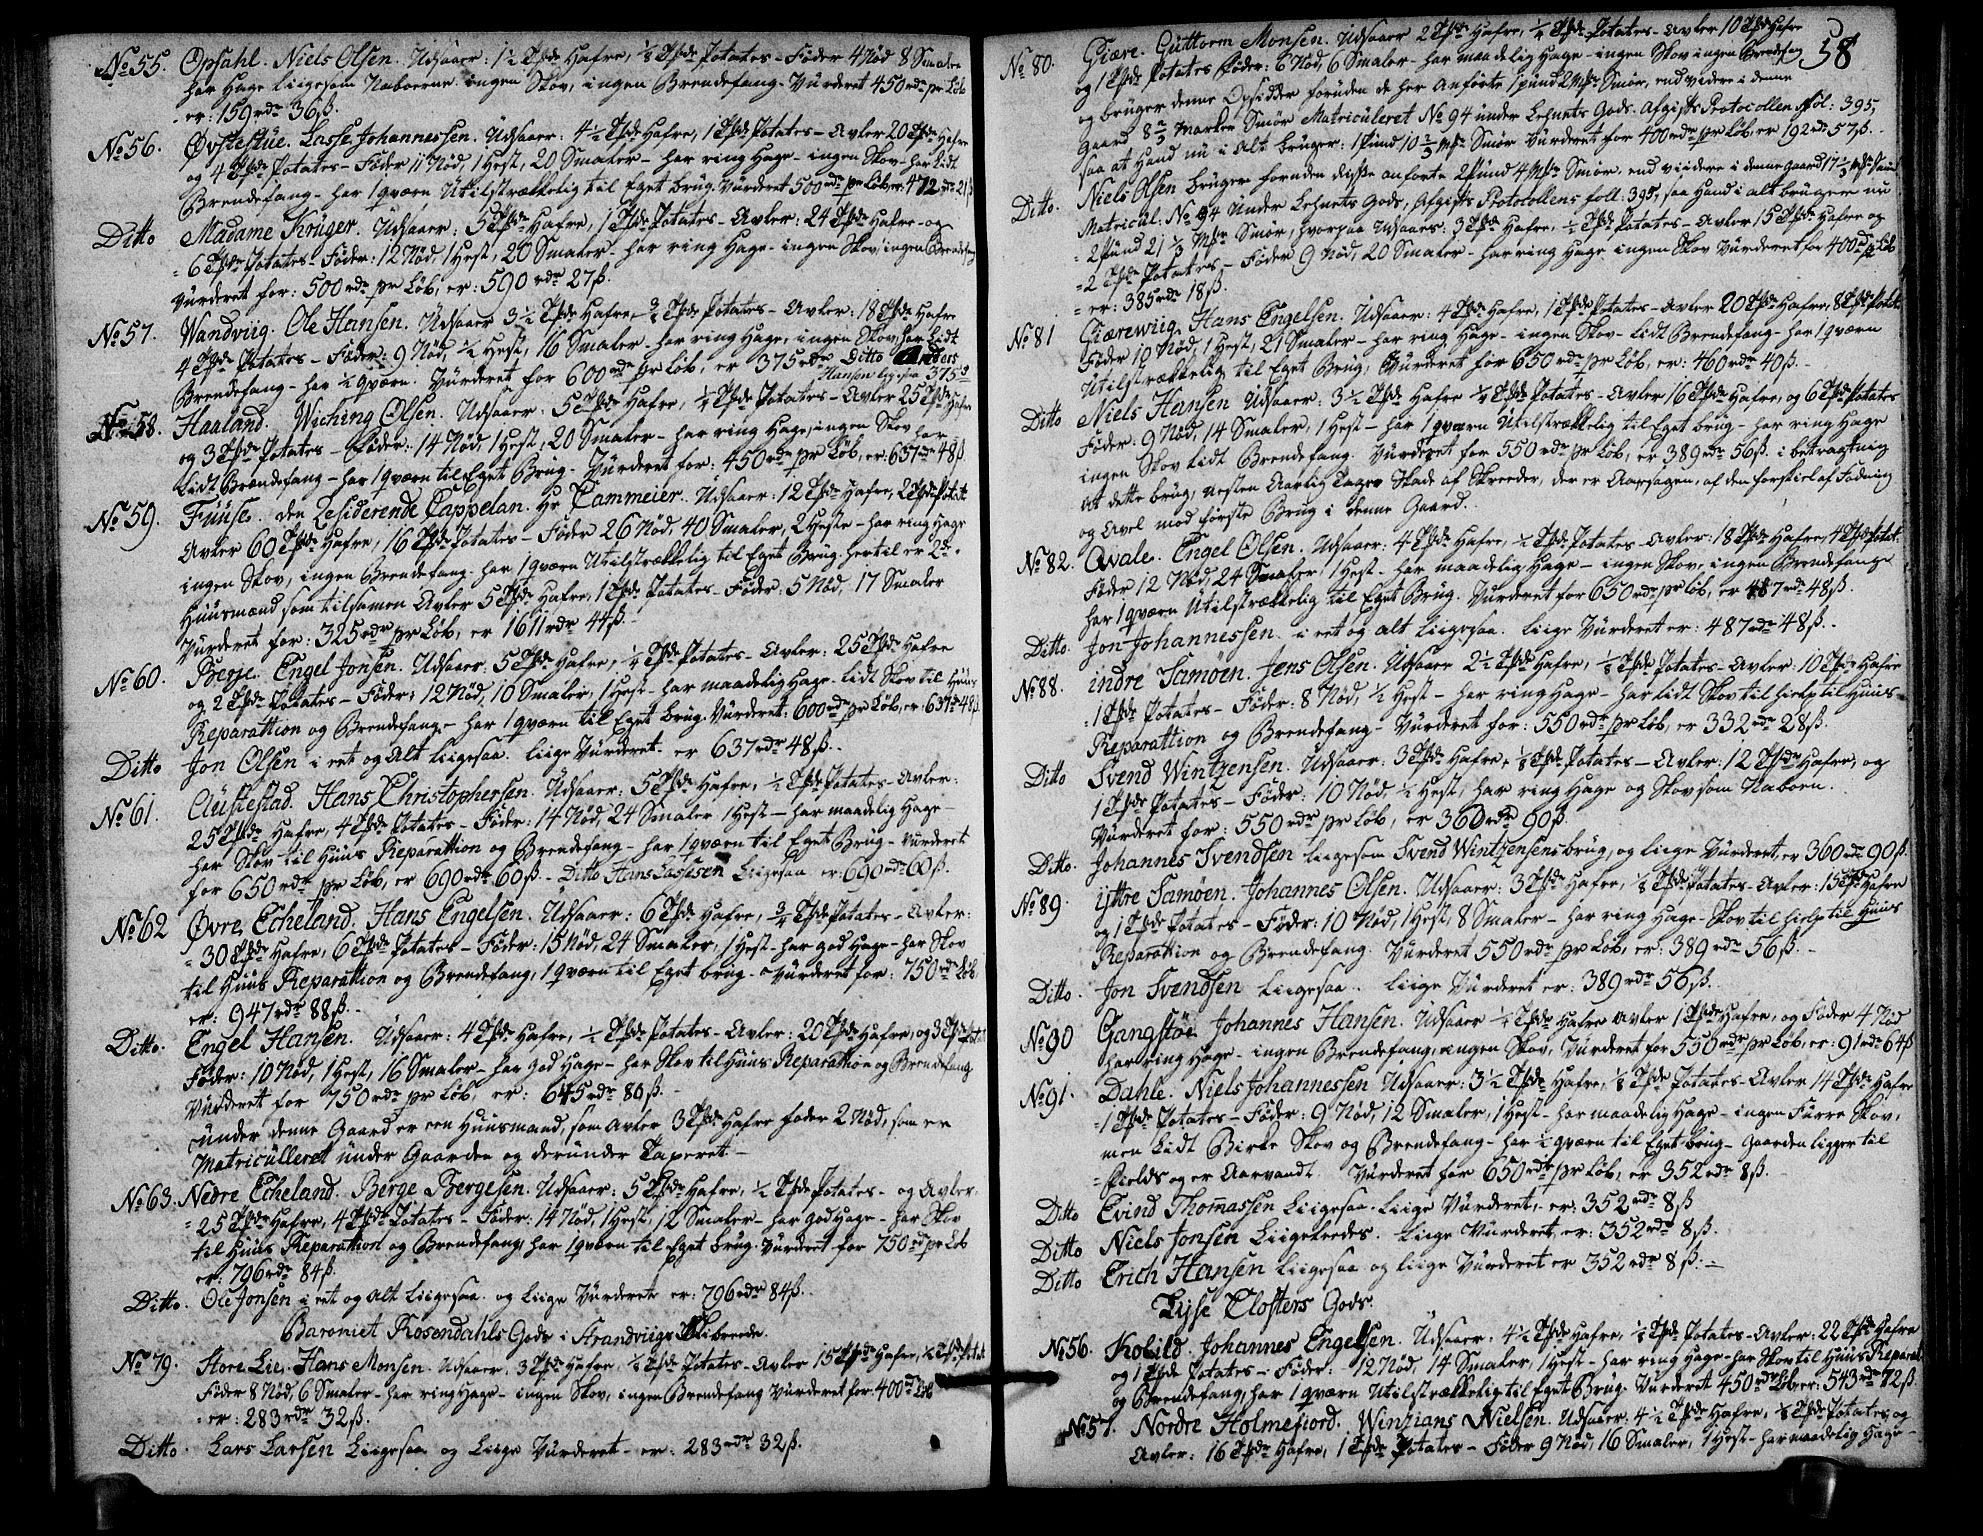 No 55. Opsahl. Niels Olsen. Udsaaer: 1½ Tpde Hafre, ⅛ Tpde Potates – Føder 4 Nød 8 Smaler
har Hage liigesom Naboerne ingen Skov, ingen Brendefang. Vurderet 450 rdr pr Løb
er: 159 rdr 36 ß.
No 56. Øvstestue. Lasse Johannessen. Udsaaer: 4½ Tpde Hafre, 1 Tpde Potates – Avler 20 Tpde Hafre
og 4 Tpde Potates – Føder 11 Nød, 1 Hest, 20 Smaler – har ring Hage – ingen Skov – har Lidt
Brendefang – har 1 qværn Utilstrækkelig til Eget brug. Vurderet 500 rdr pr Løb er: 472 rdr 21 ß
Ditto Madame Krüger. Udsaaer: 5 Tpde Hafre, 1 Tpde Potates – Avler: 24 Tpde Hafre – og
6 Tpde Potates – Føder: 12 Nød 1 Hest, 20 Smaler – har ring Hage – ingen Skov, ingen Brendefang
Vurderet for: 500 rdr pr Løb, er: 590 rdr 27 ß.
No 57. Wandviig. Ole Hansen. Udsaaer 3½ Tpde Hafre, ¾ Tpde Potates – Avler: 18 Tpde Hafre
4 Tpde Potates – Føder: 9 Nød, ½ Hest, 16 Smaler – har ring Hage, ingen Skov, har Lidt
Brendefang – har ½ qværn. Vurderet for 600 rdr pr Løb, er 375 rdr Ditto Anders
Hansen ligesaa 375
No 58. Haaland. Wiching Olsen. Udsaaer: 5 Tpde Hafre, ¼ Tpde Potates – Avler 25 Tpde Hafre
og 3 Tpde Potates – Føder: 14 Nød, 1 Hest, 20 Smaler – har ring Hage, ingen Skov har
Lidt Brændefang – har 1 qværn til Eget Brug – Vurderet for: 450 rdr pr Løb, er: 637 rdr 48 ß
No 59. Fuuse. den Residerende Cappelan. Hr Tammeier. Udsaaer: 12 Tpde Hafre, 2 Tpde Potates
Avler 60 Tpde Hafre, 16 Tpde Potates – Føder 26 Nød, 40 Smaler, 2 Heste – har ring Hage
ingen Skov, ingen Brendefang – har 1 qværn Utilstrækkelig til Eget Brug. hertil er 2de
Huusmænd som tilsamen Avler 5 Tpde Hafre, 1 Tpde Potates – Føder: 5 Nød, 17 Smaler
Vurderet for: 325 rdr pr Løb, er 1611 rdr 44 ß.
No 60. Berje. Engel Jonsen. Udsaaer: 5 Tpde Hafre, ¼ Tpde Potates – Avler: 25 Tpde Hafre
og 2 Tpde Potates – Føder: 12 Nød, 10 Smaler, 1 Hest – har maadelig Hage – lidt Skov til Huus
Reparattion og Brendefang – har 1 qværn til Eget brug. Vurderet: 600 rdr pr Løb, er: 637 rd 48 ß
Ditto Jon Olsen i eet og alt Liigesaa. liige Vurderet – er 637 rdr 48 ß.
No 61. Clustestad. Hans Christophersen. Udsaaer: 5 Tpde Hafre, ½ Tpde Potates – Avler:
25 Tpde Hafre, 4 Tpde Potates – Føder: 14 Nød, 24 Smaler 1 Hest – har maadelig Hage –
har Skov til Huus Reparattion og Brendefang – har 1 qværn til Eget Brug – Vurderet
for 650 rdr pr Løb, er 690 rdr 60 ß – Ditto Hans Lassesen Liigesaa er: 690 rdr 60 ß.
No 62 Øvre Echeland. Hans Engelsen. Udsaaer: 6 Tpde Hafre, ¾ Tpde Potates – Avler:
30 Tpde Hafre, 6 Tpde Potates – Føder: 15 Nød, 24 Smaler, 1 Hest – har god Hage – har Skov
til Huus Reparattion og Brendefang, 1 qværn til Eget brug – Vurderet for: 750 rdr Løb
er: 947 rdr 88 ß. –
Ditto. Engel Hansen. Udsaaer: 4 Tpde Hafre, ½ Tpde Potates – Avler: 20 Tpde Hafre, og 3 Tpde Potat
Føder: 10 Nød, 1 Hest, 16 Smaler – har god Hage – har Skov til Huus Reparattion og Brendefang
Vurderet for 750 rdr pr Løb, er: 645 rdr 80 ß. –
under denne Gaard er een Huusmand, som Avler 3 Tpde Hafre foder 2 Nød, som er
Matriculleret under Gaarden og derunder Taxeret –
No 63. Nedre Echeland. Børge Børgesen. Udsaaer: 5 Tpde Hafre, ½ Tpde Potates – og Avler:
25 Tpde Hafre, 4 Tpde Potates – Føder: 14 Nød, 1 Hest, 12 Smaler – har god Hage – har Skov
til Huus Reparattion og Brendefang, har 1 qværn til Eget brug. Vurderet for 750 rd pr Løb
er: 796 rdr 84 ß.
Ditto. Ole Jonsen i eet og Alt Liigesaa. og Liige Vurderet er: 796 rdr 84 ß.
Baroniet Rosendahls Gods i Strandviigs Skibrede.
No 79. Store Lie. Hans Monsen. Udsaaer: 3 Tpde Hafre, ⅛ Tpde Potates – Avler 15 Tpde Hafre, ½ Tpde Potat
Føder 8 Nød, 6 Smaler – har ring Hage – ingen Skov, ingen Brendefang Vurderet for 400 rdr Løb
er: 283 rdr 32 ß.
Ditto. Lars Larsen Liigesaa og Liige Vurderet – er: 283 rdr 32 ß.
58
No 80. Giære. Guttorm Monsen. Udsaaer 2 Tpde Hafre, ¼ Tpde Potates – Avler 10 Tpde Hafre
og 1 Tpde Potates Føder: 6 Nød, 6 Smaler – har maadelig Hage – ingen Skov ingen Brendefang
og bruger denne Opsidder foruden de her Anførte 1 pund 2 Mpr Smør, end videre i denne
Gaard 8⅔ Marker Smør Matriculeret No 94 under Lehnets Gods. Afgifts Protocollen fol: 395,
saa at Hand nu i Alt bruger: 1 Pund 10⅔ Mpr Smør Vurderet for 400 rdr pr Løb, er 192 rdr 57 ß.
Ditto. Niels Olsen bruger foruden disse anførte 2 Pund 4 Mpr Smør, end viidere i denne Gaard 17⅓ Mpr Smør
Matricul: No 94 Under Lehnets Gods, Afgifts Protocollens foll: 395, saa Hand i alt bruger nu
2 Pund 21⅓ Mpr Smør, hvorpaa Udsaaes: 3 Tpde Hafre, ½ Tpde Potates – Avler 15 Tpde Hafre og
2 Tpde Potates – Føder 9 Nød, 20 Smaler – har ring Hage ingen Skov Vurderet for 400 rdr pr Løb
er: 385 rdr 18 ß.
No 81 Giærewiig. Hans Engelsen. Udsaaer: 4 Tpde Hafre, 1 Tpde Potates – Avler 20 Tpde Hafre, 8 Tpde Potat
Føder 10 Nød, 1 Hest, 21 Smaler – har ring Hage – ingen Skov – lidt Brendefang – har 1 qværn
Utilstrækkelig til Eget Brug, Vurderet for 650 rdr pr Løb, er: 460 rdr 40 ß. –
Ditto Niels Hansen Udsaaer: 3½ Tpde Hafre ¼ Tpde Potates – Avler 16 Tpde Hafre, og 6 Tpde Potates
Føder: 9 Nød, 14 Smaler, 1 Hest – har 1 qværn Utilstrækkelig til Eget brug – har ring Hage
ingen Skov Lidt Brendefang. Vurderet for 550 rdr pr Løb, er 389 rdr 56 ß. i betragtning
at dette brug, nesten Aarlig Tager Skade af Skreeder, der er Aarsagen, af den forskiel af Fødning
og Avel mod første Brug i denne Gaard.
No 82. Qvale. Engel Olsen. Udsaaer: 4 Tpde Hafre, ½ Tpde Potates – Avler: 18 Tpde Hafre, 4 Tpde Potat
Føder 12 Nød, 24 Smaler, 1 Hest – har maadelig Hage – ingen Skov, ingen Brendefang
har 1 qværn Utilstrækkelig til Eget Brug. Vurderet for 650 rdr pr Løb, er 487 rdr 48 ß.
Ditto. Jon Johannessen i eet og alt Liigesaa. liige Vurderet er: 487 rdr 48 ß.
No 88. indre Samøen. Jens Olsen. Udsaaer 2½ Tpde Hafre, ⅛ Tpde Potates – Avler 10 Tpde Hafre
1 Tpde Potates – Føder: 8 Nød, ½ Hest – har ring Hage – har lidt Skov til hielp til Huus
Reparattion og Brendefang – Vurderet for: 550 rdr pr Løb, er 332 rdr 28 ß.
Ditto Svend Wintzensen. Udsaaer: 3 Tpde Hafre, ⅛ Tpde Potates – Avler: 12 Tpde Hafre, og
1 Tpde Potates – Føder: 10 Nød ½ Hest, har ring Hage og Skov som Naboen.
Vurderet for: 550 rdr pr Løb, er 360 rdr 90 ß.
Ditto. Johannes Svendsen liigesom Svend Wintzensens brug, og liige Vurderet, er 360 rdr 90 ß.
No 89. ijttre Samøen. Johannes Olsen. Udsaaer: 3 Tpde Hafre, ⅛ Tpde Potates – Avler: 15 Tpde Hafre
og 1 Tpde Potates – Føder: 10 Nød, 1 Hest, 8 Smaler – har ring Hage – Skov til hielp til Huus
Reparattion og Brendefang. Vurderet 550 rdr pr Løb, er: 389 rdr 56 ß. –
Ditto. Jon Svendsen Liigesaa. Liige Vurderet er: 389 rdr 56 ß.
No 90 Gangstøe Johannes Hansen. Udsaaer ¼ Tpde Hafre Avler 1 Tpde Hafre, og Føder 4 Nød
har ring Hage – ingen Brendefang, ingen Skov, Vurderet for 550 rdr pr Løb, er: 91 rdr 64 ß
No 91. Dahle. Niels Johannessen Udsaaer: 3½ Tpde Hafre, ⅛ Tpde Potates – Avler 14 Tpde Hafre
1 Tpde Potates – Føder: 9 Nød, 12 Smaler, 1 Hest – har maadelig Hage – ingen Furre Skov,
men Lidt Birke Skov og Brendefang – har ½ qværn til Eget brug – Gaarden ligger til
Fields og er Aarvandt. Vurderet for 650 rdr pr Løb, er 352 rdr 8 ß.
Ditto Evind Thomassen Liigesaa. Liige Vurderet, er: 352 rdr 8 ß
Ditto Niels Jonsen Liigeledes. Liige Vurderet, er: 352 rdr 8 ß.
Ditto Erich Hansen Liigesaa og liige Vurderet er 352 rdr 8 ß. –
Lyse Closters Gods.
No 56. Kolild. Johannes Engelsen. Udsaaer: 4½ Tpde Hafre, ⅛ Tpde Potates – Avler: 22 Tpde Hafre
og 1 Tpde Potates – Føder: 12 Nød, 14 Smaler, 1 Hest – har ring Hage – har Skov til Huus Reparat
og Brendefang, har 1 qværn Utilstrækkelig til Eget Brug. Vurderet 450 rdr Løb er: 543 rdr 72 ß.
No 57. Nordre Holmefiord. Wintzians Nielsen. Udsaaer: 4½ Tpde Hafre, ⅛ Tpde Potates og
Avler: 16 Tpde Hafre, 1 Tpde Potates – Føder 9 Nød, 16 Smaler, 1 Hest – har maadelig Hage –